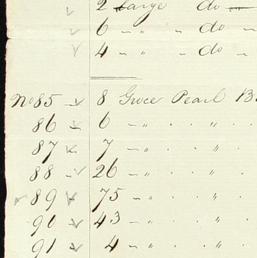 2 Large do
6 " " do "
4 " " do "
No 85 8 Groce Pearl 13
86 6 " " "
87 7 " " "
88 26 " " "
89 75 " " "
90 43 " " "
91 4 " " "